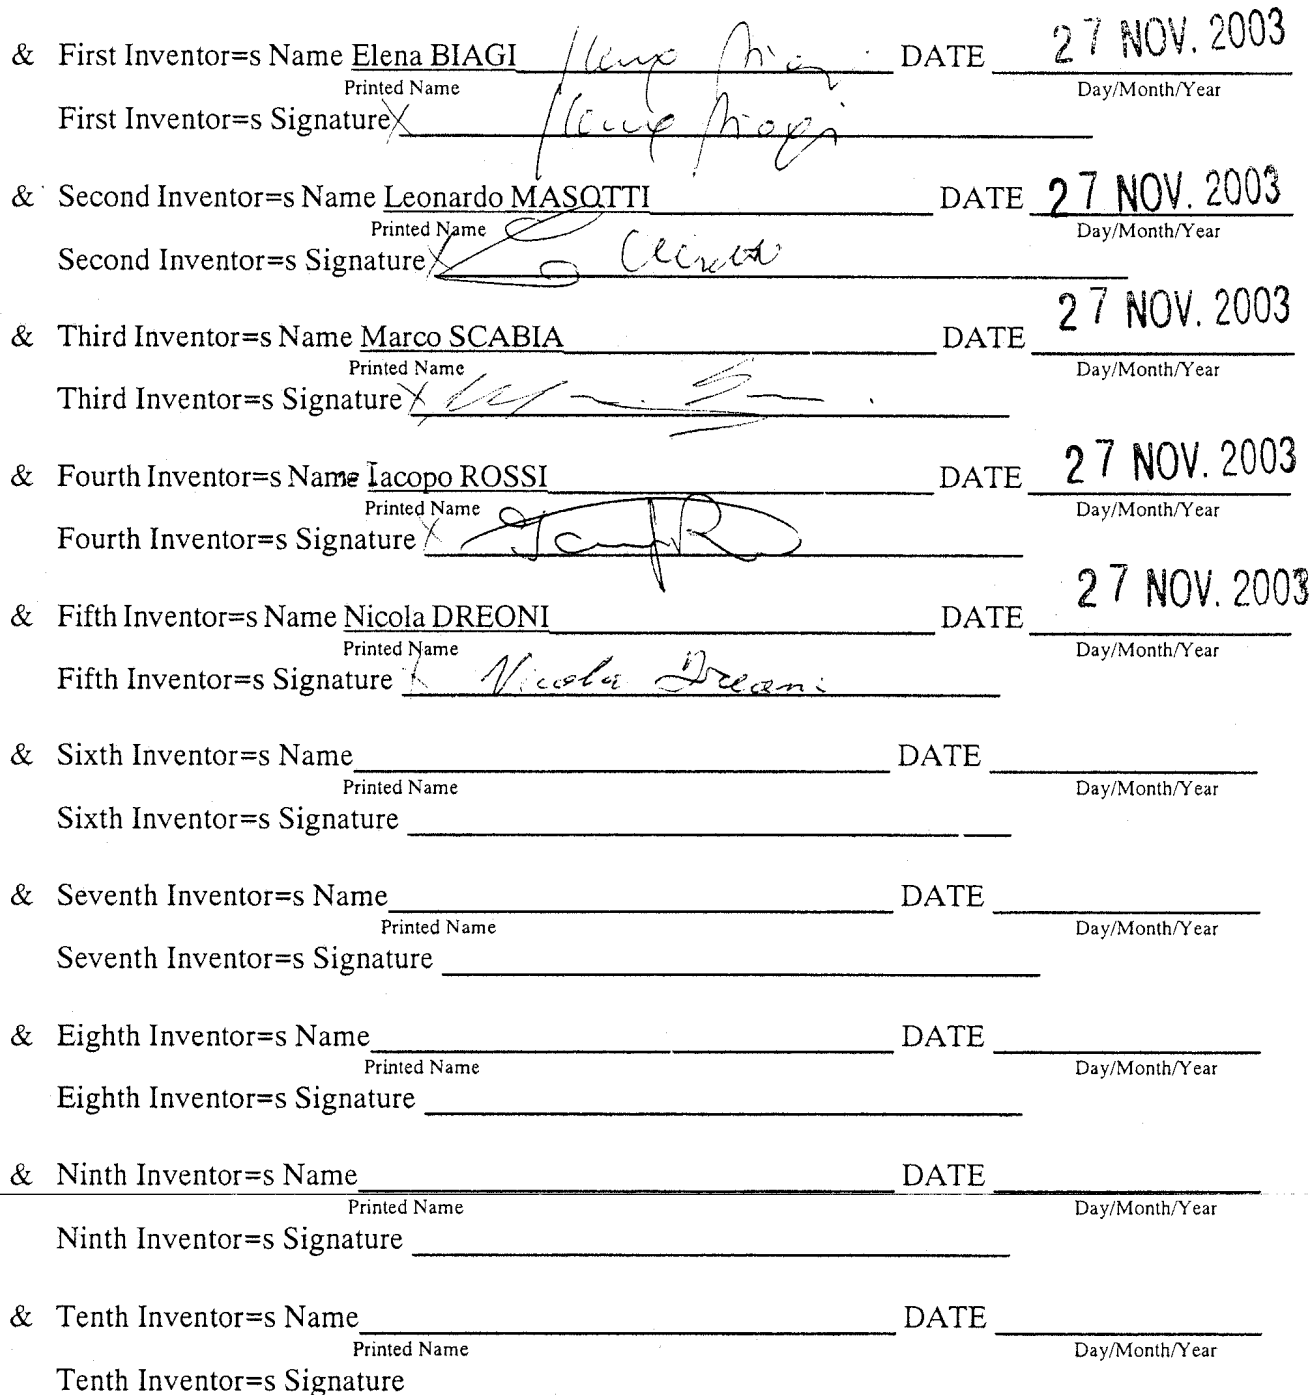 & First Inventor=s Name Elena BIAGI Elena Biagi DATE 27 NOV. 2003
Printed Name Day/Month/Year
First Inventor=s Signature X Elena Biagi
& Second Inventor=s Name Leonardo MASOTTI DATE 27 NOV. 2003
Printed Name Day/Month/Year
Second Inventor=s Signature X
& Third Inventor=s Name Marco SCABIA DATE 27 NOV. 2003
Printed Name Day/Month/Year
Third Inventor=s Signature X
& Fourth Inventor=s Name Iacopo ROSSI DATE 27 NOV. 2003
Printed Name Day/Month/Year
Fourth Inventor=s Signature X
& Fifth Inventor=s Name Nicola DREONI DATE 27 NOV. 2003
Printed Name Day/Month/Year
Fifth Inventor=s Signature X Nicola Dreoni
& Sixth Inventor=s Name DATE
Printed Name Day/Month/Year
Sixth Inventor=s Signature
& Seventh Inventor=s Name DATE
Printed Name Day/Month/Year
Seventh Inventor=s Signature
& Eighth Inventor=s Name DATE
Printed Name Day/Month/Year
Eighth Inventor=s Signature
& Ninth Inventor=s Name DATE
Printed Name Day/Month/Year
Ninth Inventor=s Signature
& Tenth Inventor=s Name DATE
Printed Name Day/Month/Year
Tenth Inventor=s Signature